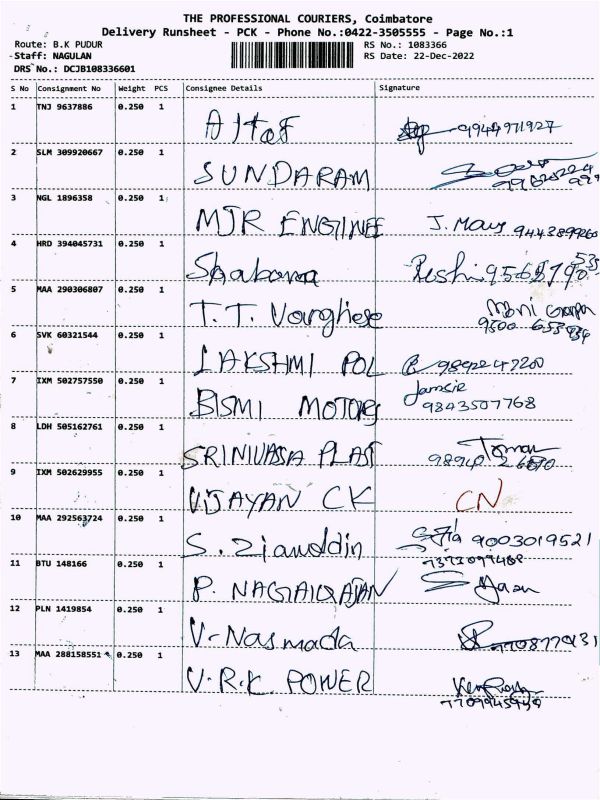 THE PROFESSIONAL COURIERS, Coimbatore
Delivery Runsheet - PCK - Phone No.:0422-3505555 - Page No.:1
Route: B.K PUDUR RS No.: 1083366
Staff: NAGULAN RS Date: 22-Dec-2022
DRS No.: DCJB108336601
S No Consignment No Weight PCS Consignee Details Signature
1 TNJ 9637886 0.250 1
Altaf 9944971927
2 SLM 309920667 0.250 1
SUNDARAM
3 NGL 1896358 0.250 1
MJR ENGINEE J. Mary
4 HRD 394045731 0.250 1
Shabana Reshi
5 MAA 290306807 0.250 1
T.T. Varghese
6 SVK 60321544 0.250 1
LAKSHMI POL 9892247200
7 IXM 502757550 0.250 1
BISMI MOTORS 9843507768
8 LDH 505162761 0.250 1
SRINIVASA PLAS
9 IXM 502629955 0.250 1
VIJAYAN CK CN
10 MAA 292563724 0.250 1
S. Ziauddin 9003019521
11 BTU 148166 0.250 1
P. NAGARAJAN
12 PLN 1419854 0.250 1
V. Narmada
13 MAA 288158551 0.250 1
V.R.K. POWER